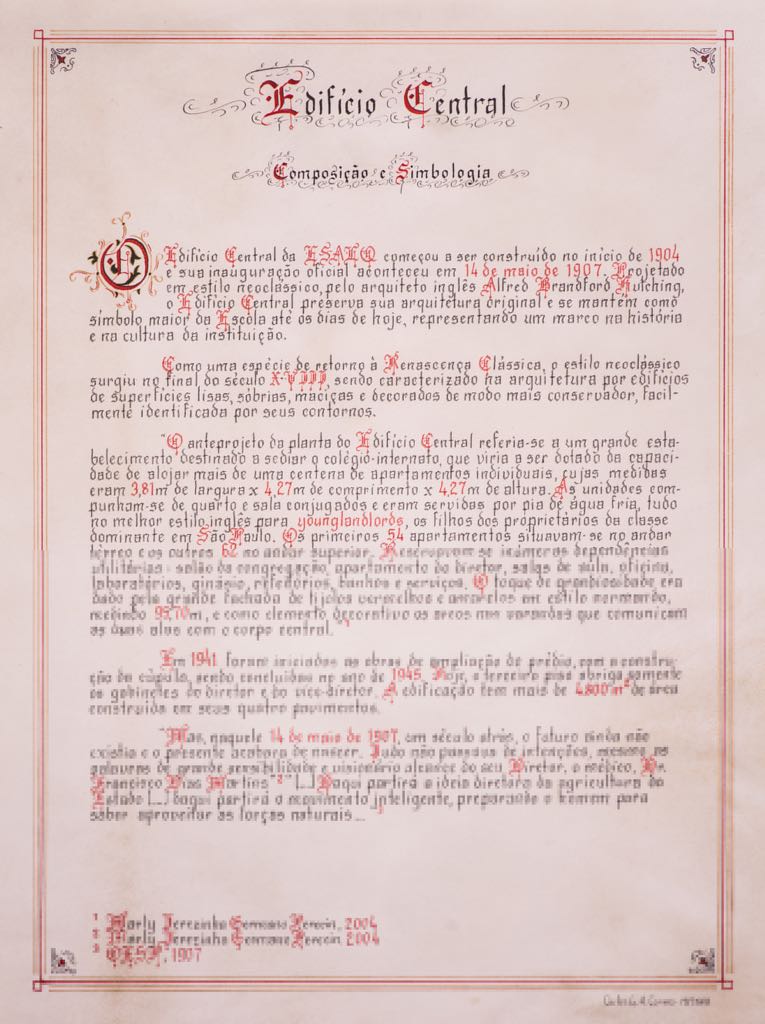 Edifício Central
Composição e Simbologia
O Edifício Central da ESALQ começou a ser construído no início de 1904
e sua inauguração oficial aconteceu em 14 de maio de 1907. Projetado
em estilo neoclássico, pelo arquiteto inglês Alfred Brandford Hutching,
o Edifício Central preserva sua arquitetura original e se mantém como
símbolo maior da Escola até os dias de hoje, representando um marco na história
e na cultura da instituição.
Como uma espécie de retorno à Renascença Clássica, o estilo neoclássico
surgiu no final do século XVIII, sendo caracterizado na arquitetura por edifícios
de superfícies lisas, sóbrias, maciças e decorados de modo mais conservador, facil-
mente identificada por seus contornos.
"O anteprojeto da planta do Edifício Central referia-se a um grande esta-
belecimento destinado a sediar o colégio-internato, que viria a ser dotado da capaci-
dade de alojar mais de uma centena de apartamentos individuais, cujas medidas
eram 3,81m de largura x 4,27m de comprimento x 4,27m de altura. As unidades com-
punham-se de quarto e sala conjugados e eram servidas por pia de água fria, tudo
no melhor estilo inglês para younglandlords, os filhos dos proprietários da classe
dominante em São Paulo. Os primeiros 54 apartamentos situavam-se no andar
térreo e os outros 62 no andar superior. Reservavam-se inúmeras dependências
utilitárias: salão da congregação, apartamento do diretor, salas de aula, oficina,
laboratórios, ginásio, refeitórios, banhos e serviços. O toque de grandiosidade era
dado pela grande fachada de tijolos vermelhos e amarelos em estilo normando,
medindo 95,70m, e como elemento decorativo os arcos nas varandas que comunicam
as duas alas com o corpo central."¹
Em 1941 foram iniciadas as obras de ampliação do prédio, com a constru-
ção da cúpula, sendo concluídas no ano de 1945. Hoje, o terceiro piso abriga somente
os gabinetes do diretor e do vice-diretor. A edificação tem mais de 4.800m² de área
construída em seus quatro pavimentos.
"Mas, naquele 14 de maio de 1907, um século atrás, o futuro ainda não
existia e o presente acabara de nascer. Tudo não passava de intenções, mesmo as
palavras de grande sensibilidade e visionário alcance do seu Diretor, o médico, Dr.
Francisco Dias Martins"² "[...] Daqui partirá a ideia diretora da agricultura do
Estado [...] daqui partirá o movimento inteligente, preparando o homem para
saber aproveitar as forças naturais...
¹ Marly Terezinha Germano Perecin, 2004
² Marly Terezinha Germano Perecin 2004
³ 1907